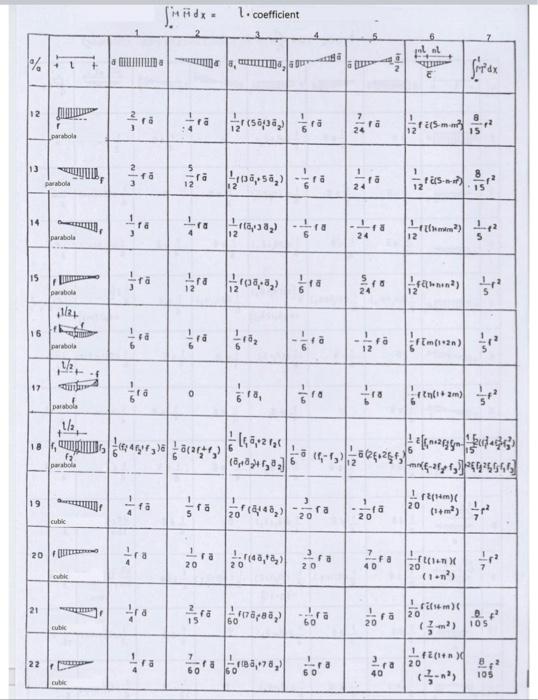 ∫₀ˡ M M̄ dx = l · coefficient
1 2 3 4 5 6 7
a/a l ā ā ā ā₁ ā₂ ā ā ā ā/2 ml nl c̄ ∫₀ˡ M²dx
12 f parabola 2/3 f ā 1/4 f ā 1/12 f(5ā₁+3ā₂) 1/6 f ā 7/24 f ā 1/12 f c̄(5-m-m²) 8/15 f²
13 f parabola 2/3 f ā 5/12 f ā 1/12 f(3ā₁+5ā₂) -1/6 f ā 1/24 f ā 1/12 f c̄(5-n-n²) 8/15 f²
14 f parabola 1/3 f ā 1/4 f ā 1/12 f(ā₁+3ā₂) -1/6 f ā -1/24 f ā 1/12 f c̄(1+m+m²) 1/5 f²
15 f parabola 1/3 f ā 1/12 f ā 1/12 f(3ā₁+ā₂) 1/6 f ā 5/24 f ā 1/12 f c̄(1+n+n²) 1/5 f²
16 l/2 f f parabola 1/6 f ā 1/6 f ā 1/6 f ā₂ -1/6 f ā -1/12 f ā 1/6 f c̄ m(1+2n) 1/5 f²
17 l/2 -f f parabola 1/6 f ā 0 1/6 f ā₁ 1/6 f ā 1/6 f ā 1/6 f c̄ n(1+2m) 1/5 f²
18 l/2 f₁ f₂ f₃ parabola 1/6 (f₁+4f₂+f₃)ā 1/6 ā(2f₂+f₃) 1/6 [f₁ā₁+2f₂(ā₁+ā₂)+f₃ā₂] 1/6 ā (f₁-f₃) 1/12 ā(2f₁+2f₂-f₃) 1/6 c̄[f₁n+2f₂+f₃m-mn(f₁-2f₂+f₃)]
19 f cubic 1/4 f ā 1/5 f ā 1/20 f(ā₁+4ā₂) -3/20 f ā -1/20 f ā 1/20 f c̄(1+m)(1+m²) 1/7 f²
20 f cubic 1/4 f ā 1/20 f ā 1/20 f(4ā₁+ā₂) 3/20 f ā 7/40 f ā 1/20 f c̄(1+n)(1+n²) 1/7 f²
21 f cubic 1/4 f ā 2/15 f ā 1/60 f(7ā₁+8ā₂) -1/60 f ā 1/20 f ā 1/20 f c̄(1+m)(7/3-m²) 8/105 f²
22 f cubic 1/4 f ā 7/60 f ā 1/60 f(8ā₁+7ā₂) 1/60 f ā 3/40 f ā 1/20 f c̄(1+n)(7/3-n²) 8/105 f²